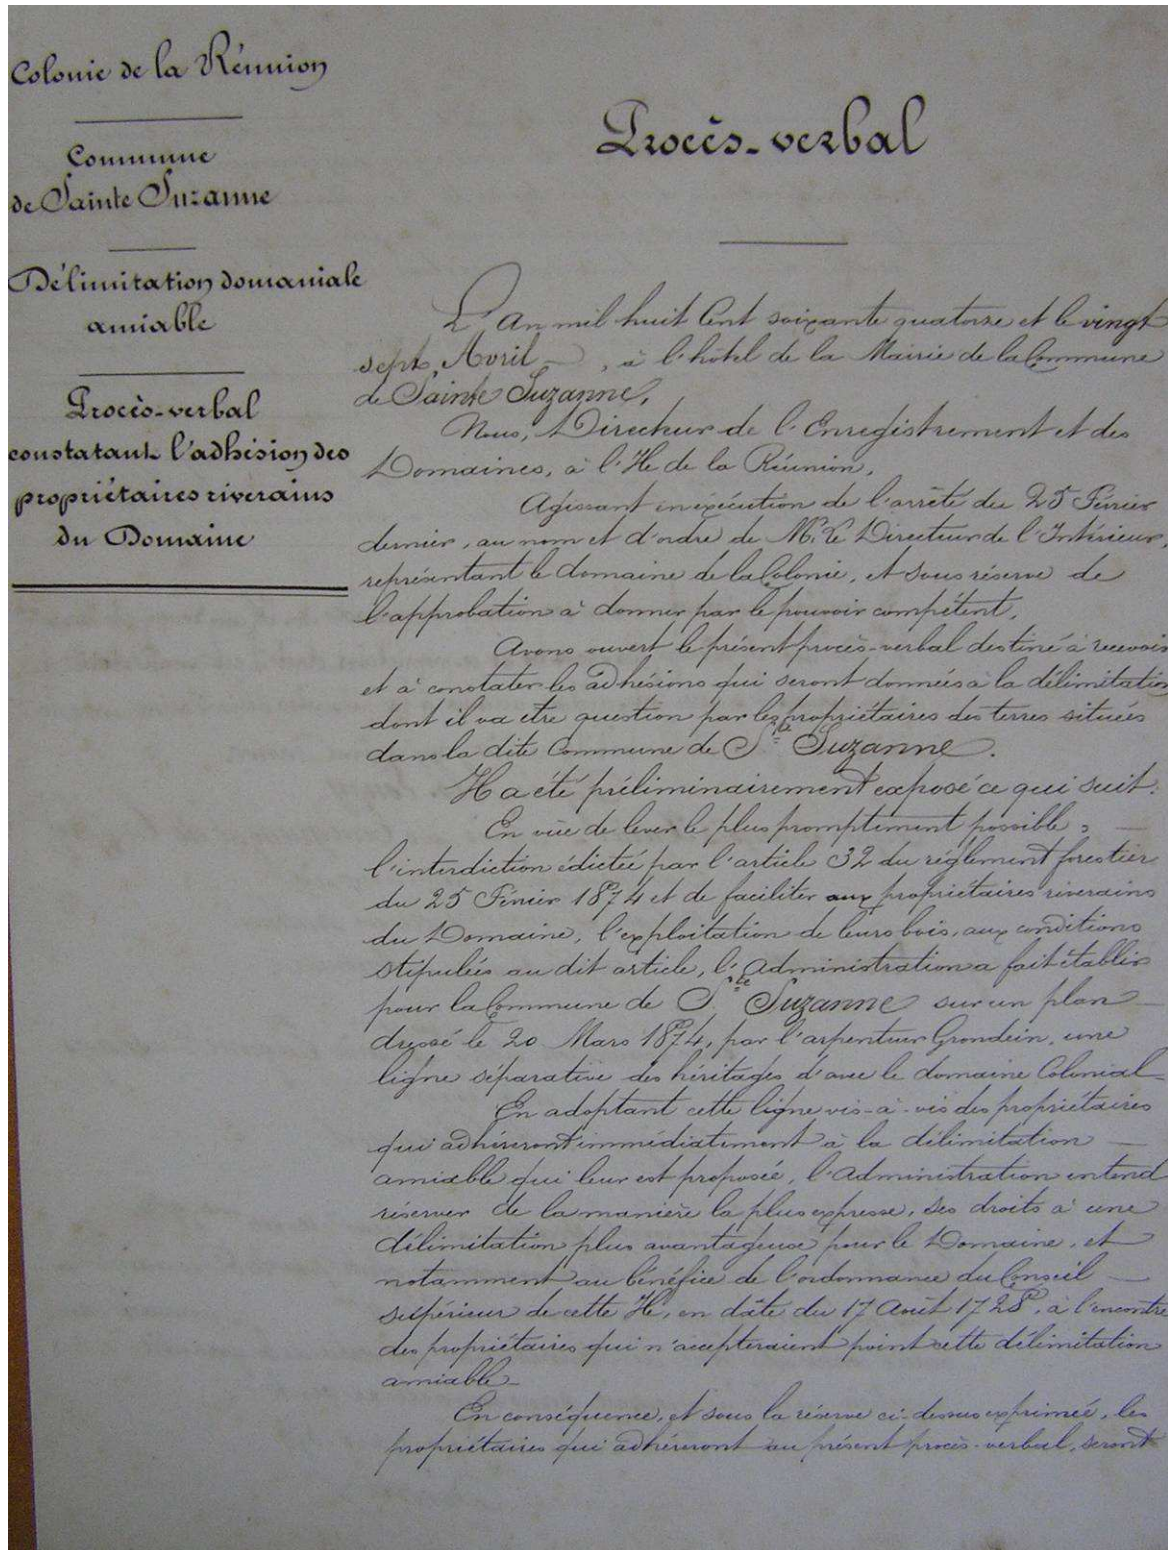 Colonie de la Réunion
Commune
de Sainte Suzanne
Délimitation domaniale
amiable
Procès-verbal
constatant l'adhésion des
propriétaires riverains
du Domaine
Procès-verbal
L'An mil huit Cent soixante quatorze et le vingt
sept Avril, à l'hôtel de la Mairie de la Commune
de Sainte Suzanne,
Nous, Directeur de l'Enregistrement et des
Domaines, à l'Ile de la Réunion,
Agissant en exécution de l'arrêté du 25 Février
dernier, au nom et d'ordre de M. le Directeur de l'Intérieur,
représentant le domaine de la Colonie, et sous réserve de
l'approbation à donner par le pouvoir compétent,
Avons ouvert le présent procès-verbal destiné à recevoir
et à constater les adhésions qui seront données à la délimitation
dont il va etre question par les propriétaires des terres situées
dans la dite Commune de Ste Suzanne.
Il a été préliminairement exposé ce qui suit:
En vue de lever le plus promptement possible,
l'interdiction édictée par l'article 32 du réglement forestier
du 25 Février 1874 et de faciliter aux propriétaires riverains
du Domaine, l'exploitation de leurs bois, aux conditions
stipulées au dit article, l'Administration a fait établir
pour la Commune de Ste Suzanne sur un plan
dressé le 20 Mars 1874, par l'arpenteur Grondein, une
ligne séparative des héritages d'avec le domaine Colonial
En adoptant cette ligne vis-à-vis des propriétaires
qui adhéreront immédiatement à la délimitation
amiable qui leur est proposée, l'Administration entend
réserver de la manière la plus expresse, ses droits à une
délimitation plus avantageuse pour le Domaine, et
notamment au bénéfice de l'ordonnance du Conseil
supérieur de cette Ile, en date du 17 Août 1728, à l'encontre
des propriétaires qui n'accepteraient point cette délimitation
amiable.
En conséquence, et sous la réserve ci-dessus exprimée, les
propriétaires qui adhéreront au présent procès-verbal, seront